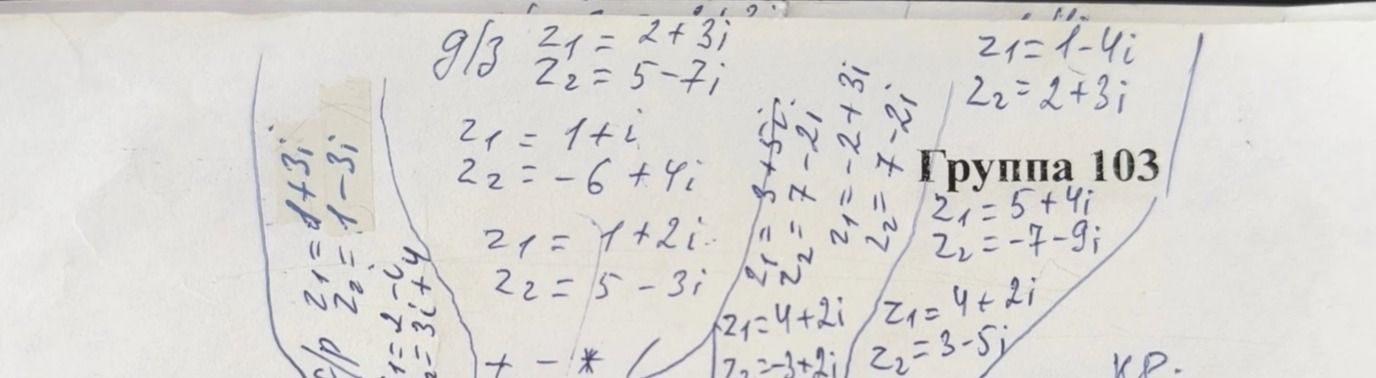 д/з z1 = 2+3i
z2 = 5-7i
z1 = 1+i
z2 = -6+4i
z1 = 1+2i
z2 = 5-3i
+ - *
с/р z1=1+3i
z2=1-3i
z1=2-i
z2=3i+4
z1=3+5i
z2=7-2i
z1=-2+3i
z2=7-2i
z1=4+2i
z2=-3+2i
z1=1-4i
z2=2+3i
Группа 103
z1=5+4i
z2=-7-9i
z1=4+2i
z2=3-5i
кр.